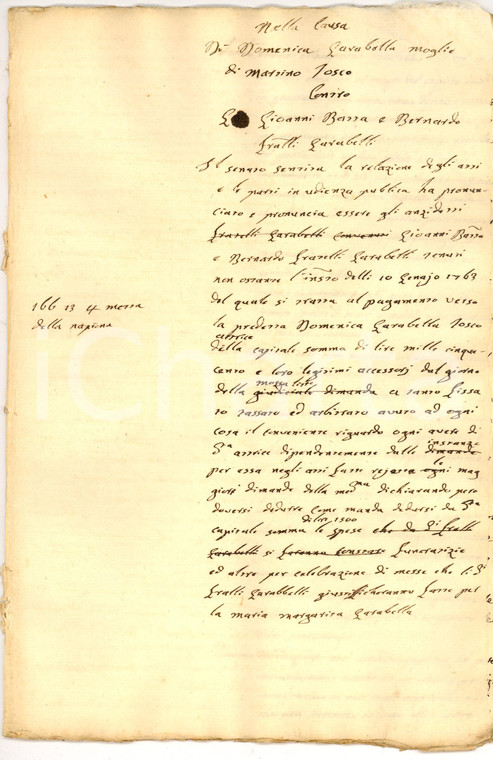 Nella Causa
Di Domenica Garabella moglie
di Martino Tosco
Contro
Li Giovanni Batta e Bernardo
fratelli Garabelli
Il senato sentita la relazione degli atti
e le parti in udienza publica ha pronun-
ciato e pronuncia essere gli anzidetti
fratelli Garabelli convenuti Giovanni Batta
e Bernardo fratelli Garabelli tenuti
non ostante l'instro delli 10 Genajo 1763
del quale si tratta al pagamento verso
la predetta Domenica Garabella Tosco
attrice
della capitale somma di lire mille cinque
cento e loro legitimi accessorj dal giorno
mossa lite
della giudiciale dimanda a tanto fissa
to tassato ed arbitrato avuto ad ogni
cosa il conveniente riguardo ogni avere di
da attrice dipendentemente dalle dimande
instanze
per essa negli atti fatte rejetta ogni mag
le
giori dimande della medma dichiarando però
doversi dedurre come manda dedursi da da
di lire 1500
capitale somma le spese che da di fratelli
Garabelli si faranno constare funeratizie
ed altre per celebrazione di messe che li di
fratelli Garabbelli giustificheranno fatte pel
la maria margarita Garabella
166 13 4 metà
della